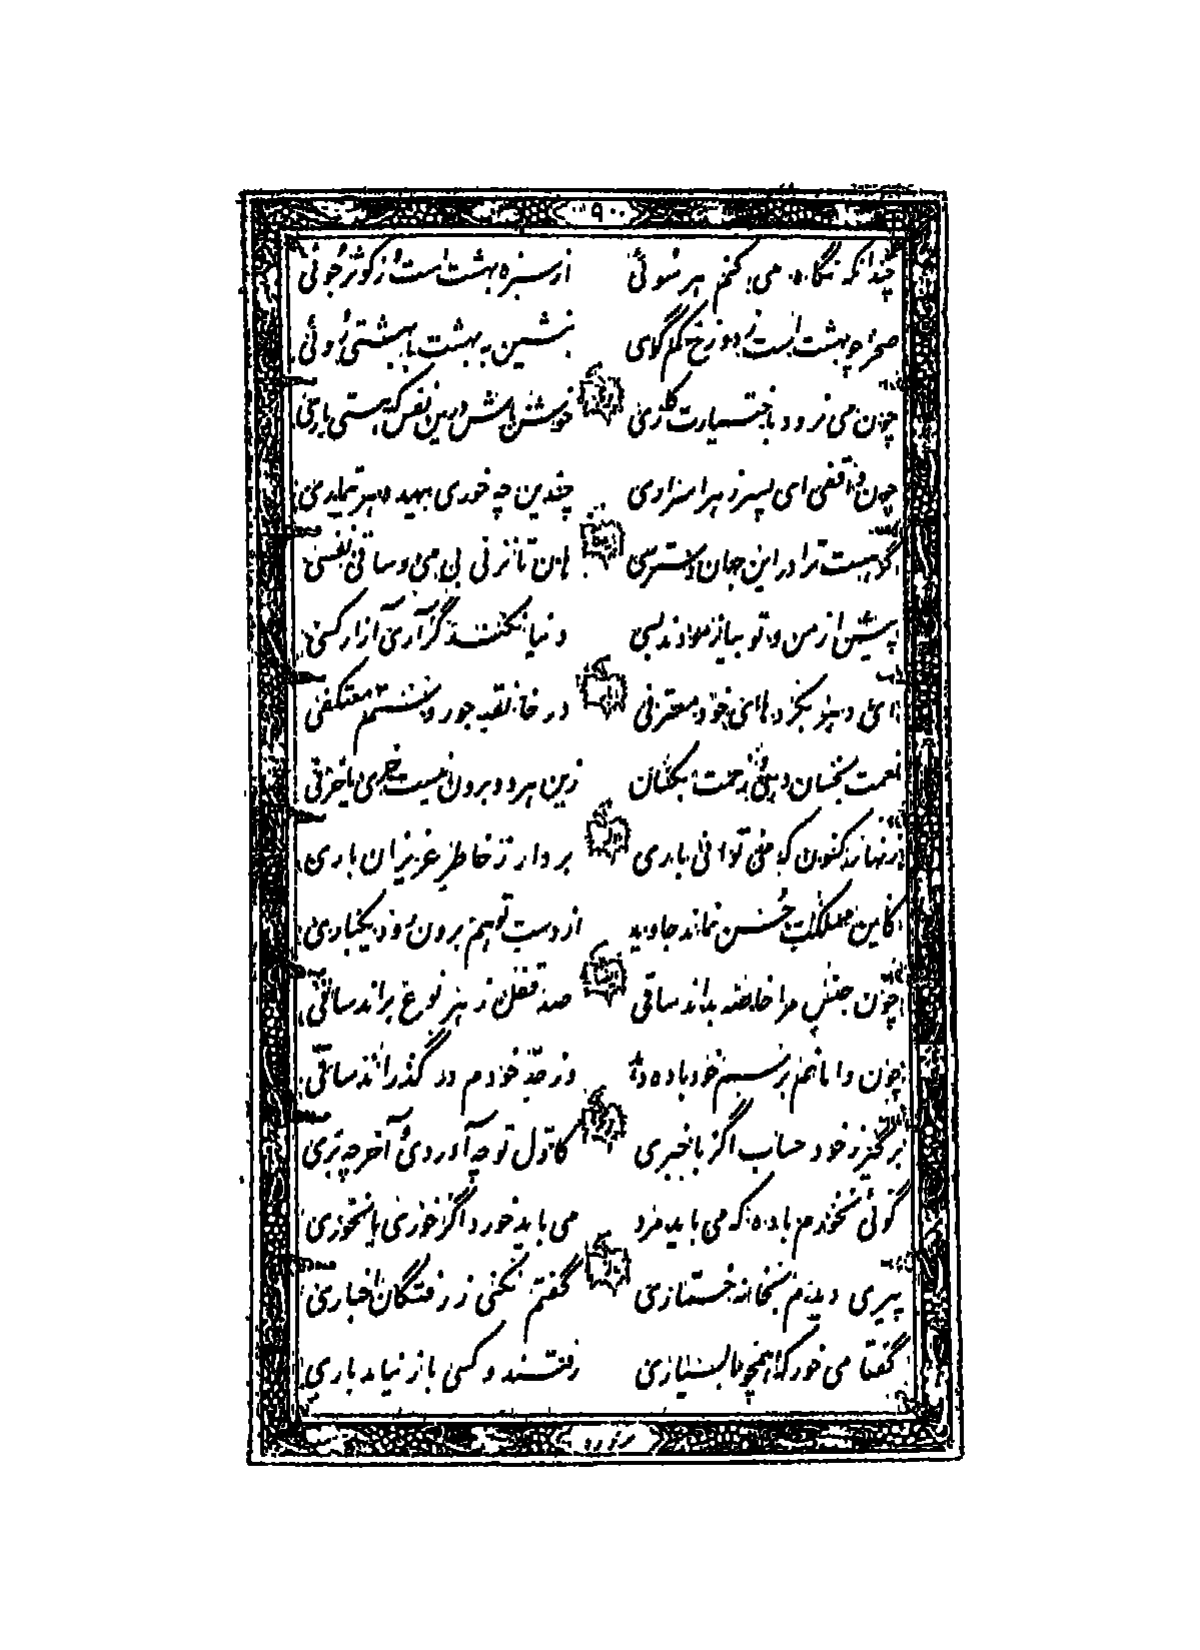 ٩٠
چندانکه نگاه می کنم هر سوئی از سبزه بهشت است و ز کوثر جوئی
صحرا چو بهشت است ز دوزخ کم گوی بنشین به بهشت با بهشتی روئی
چون می نرود باختیارت کاری خوش باش درین نفس که هستی باری
چون واقفی ای پسر ز هر اسراری چندین چه خوری بیهده هر تیماری
گر هست ترا در این جهان دسترسی هان تا نزنی بی می و ساقی نفسی
پیش از من و تو بیازمودند بسی دنیا نکند گر آری آزار کسی
ای در بکرد های خود معترفی در خانقه جور و ستم معتکفی
نعمت بخسان دهی زحمت بکسان زین هر دو برون نیست خری یا خرفی
زنهار کنون که می توانی باری بردار ز خاطر عزیزان باری
کاین مملکت حسن نماند جاوید از دست تو هم برون رود یکباری
چون جنس مرا خاصه بداند ساقی صد فصل ز هر نوع براند ساقی
چون وا مانم برسم خود باده دهد وز حد خودم در گذراند ساقی
برگیر ز خود حساب اگر باخبری کاول تو چه آوردی و آخر چه بری
گوئی نخورم باده که می باید مرد می باید مرد اگر خوری یا نخوری
پیری دیدم بخانه خماری گفتم نکنی ز رفتگان اخباری
گفتا می خور که همچو ما بسیاری رفتند و کسی باز نیامد باری